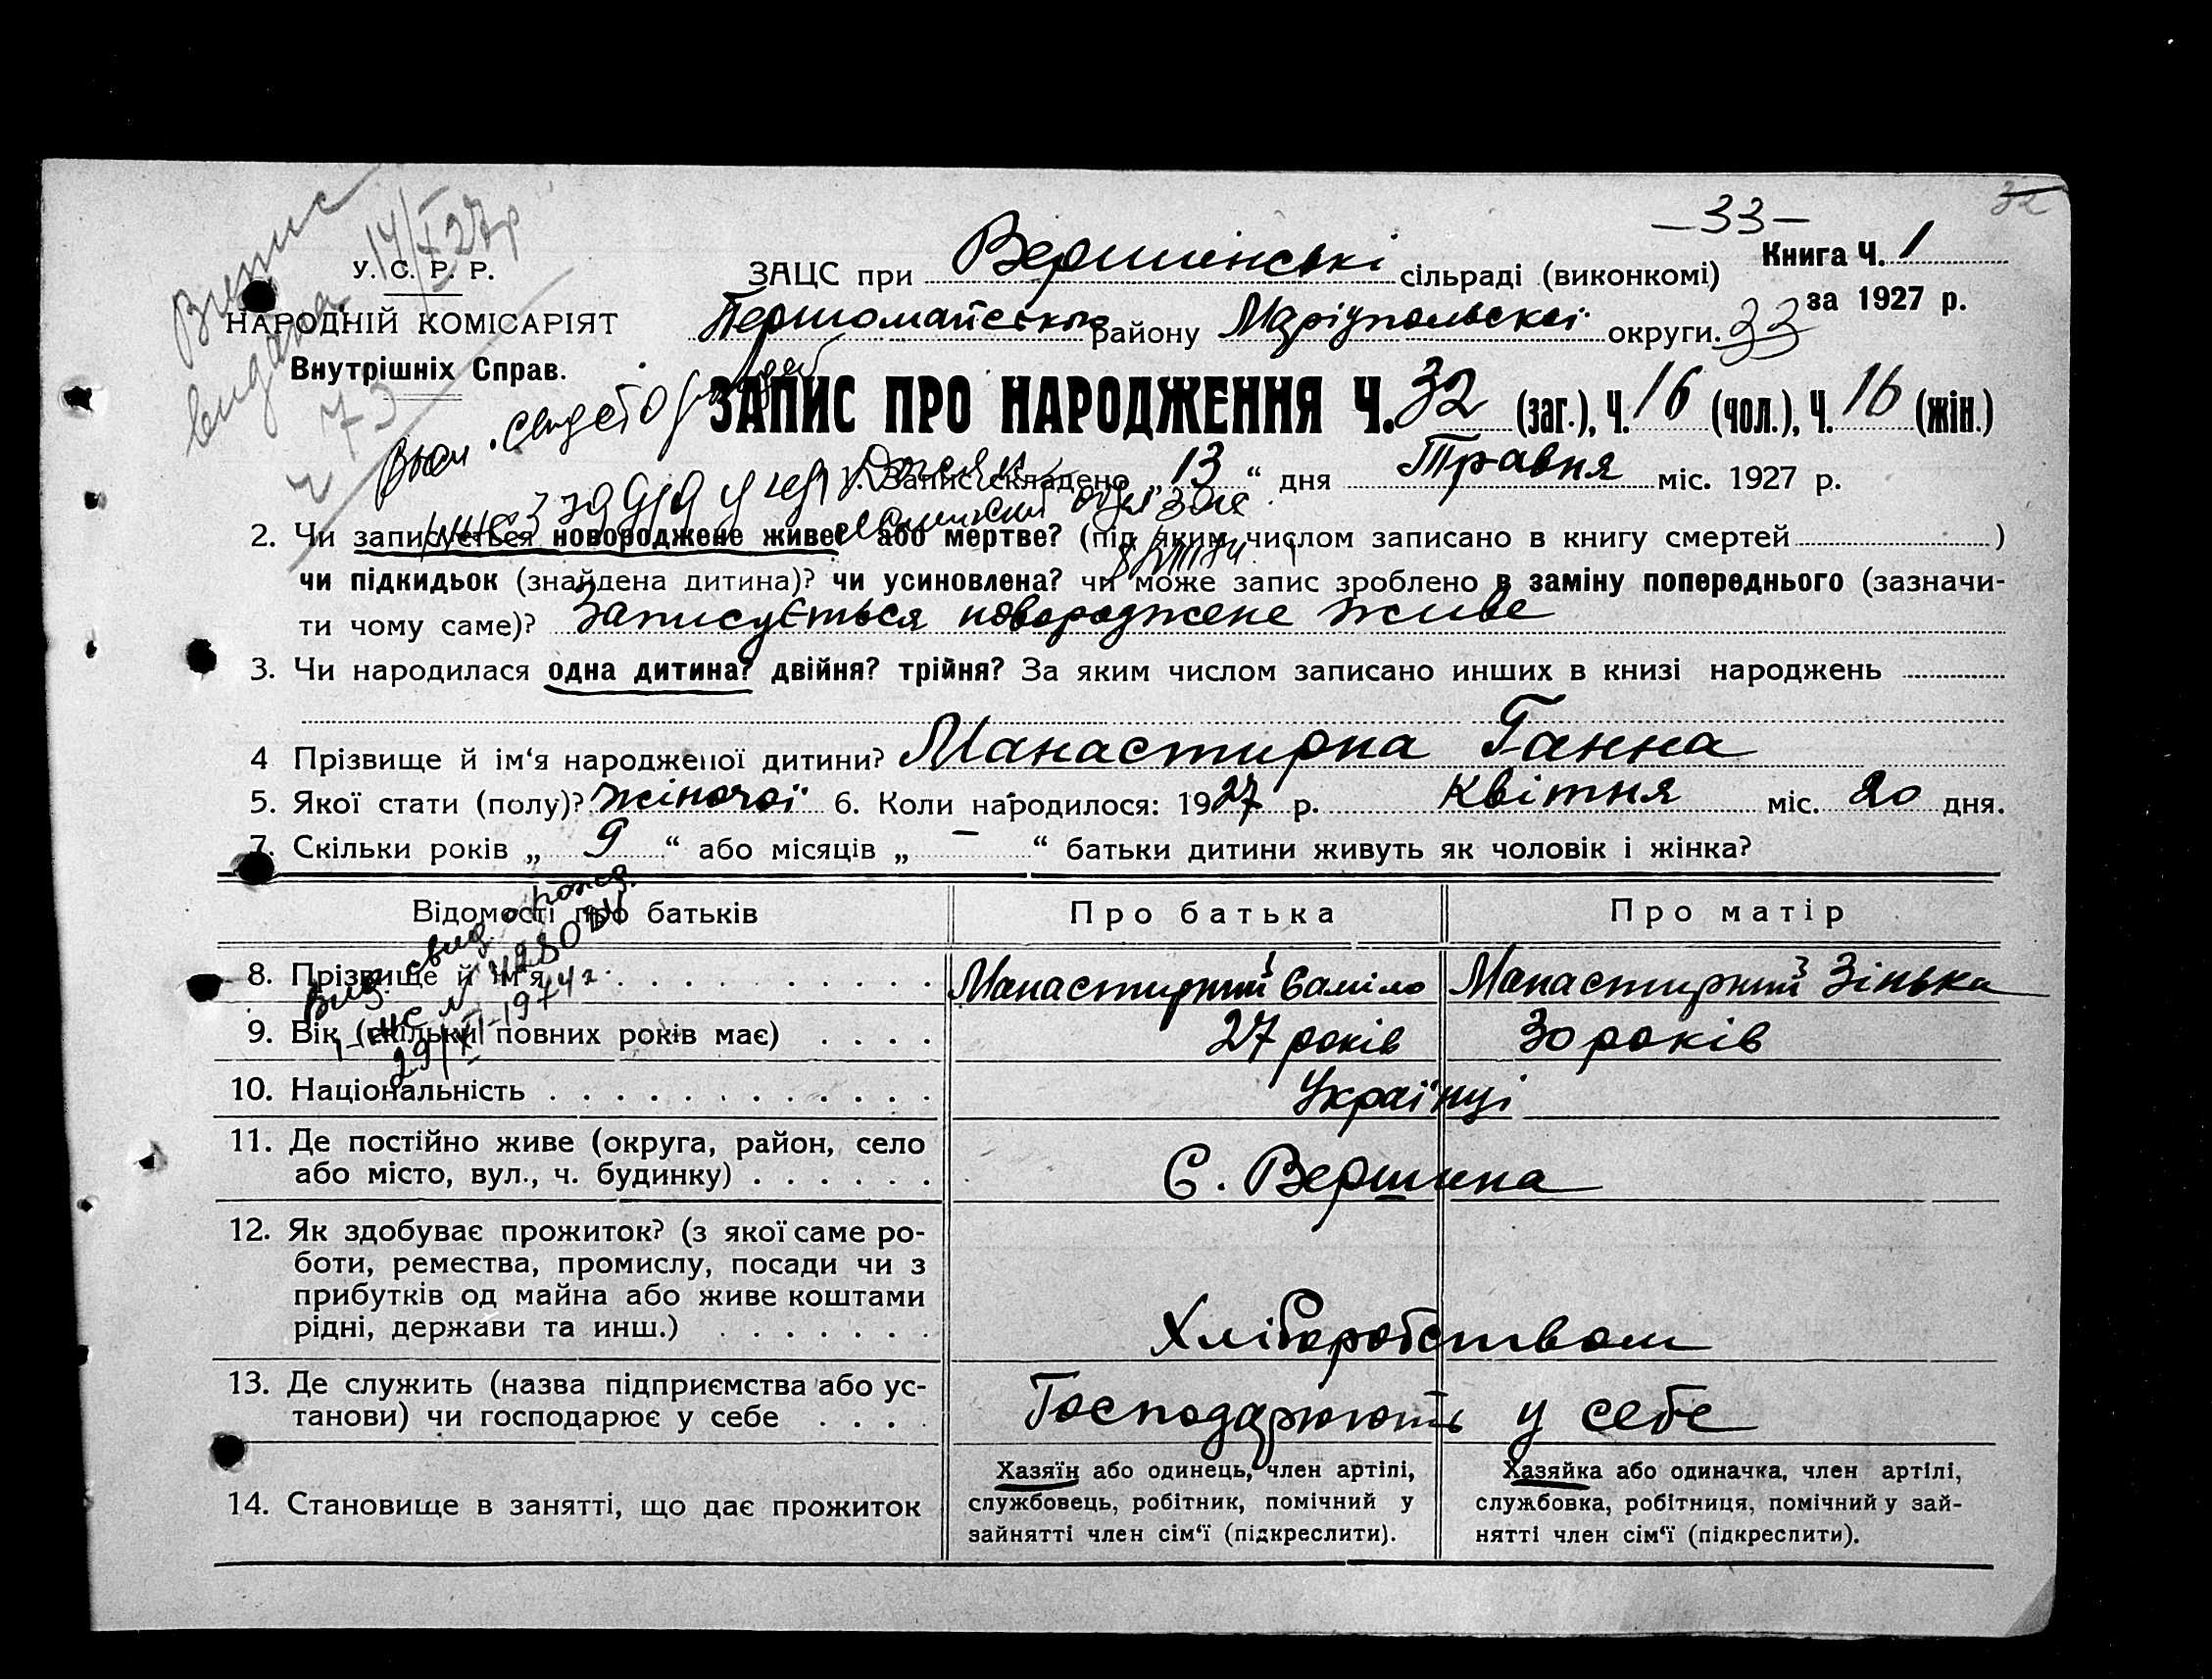 32
— 33 —
Книга Ч. 1
за 1927 р.
У. С. Р. Р.
НАРОДНІЙ КОМІСАРІЯТ
Внутрішніх Справ.
ЗАЦС при Вершинські сільраді (виконкомі)
Першомайською району Маріупольської округи. 33
ЗАПИС ПРО НАРОДЖЕННЯ Ч. 32 (заг.), Ч. 16 (чол.), Ч. 16 (жін.)
1. Запис складено „ 13 “ дня Травня міс. 1927 р.
2. Чи записується новороджене живе? або мертве? (під яким числом записано в книгу смертей )
чи підкидьок (знайдена дитина)? чи усиновлена? чи може запис зроблено в заміну попереднього (зазначи-
ти чому саме)? Записується новороджене живе
3. Чи народилася одна дитина? двійня? трійня? За яким числом записано инших в книзі народжень
4 Прізвище й ім‘я народженої дитини? Манастирна Ганна
5. Якої стати (полу)? жіночої 6. Коли народилося: 1927 р. Квітня міс. 20 дня.
7. Скільки років „ 9 “ або місяців „ – “ батьки дитини живуть як чоловік і жінка?
Відомості про батьків Про батька Про матір
8. Прізвище й ім‘я Манастирний Манастирний Зінька
9. Вік (скільки повних років має) 27 років 30 років
10. Національність Українці
11. Де постійно живе (округа, район, село
або місто, вул., ч. будинку) С. Вершина
12. Як здобуває прожиток? (з якої саме ро-
боти, ремества, промислу, посади чи з
прибутків од майна або живе коштами
рідні, держави та инш.) Хліборобством
13. Де служить (назва підприємства або ус-
танови) чи господарює у себе Господарюють у себе
14. Становище в занятті, що дає прожиток
Хазяїн або одинець, член артілі,
службовець, робітник, помічний у
зайнятті член сім‘ї (підкреслити).
Хазяйка або одиначка, член артілі,
службовка, робітниця, помічний у зай-
нятті член сім‘ї (підкреслити).